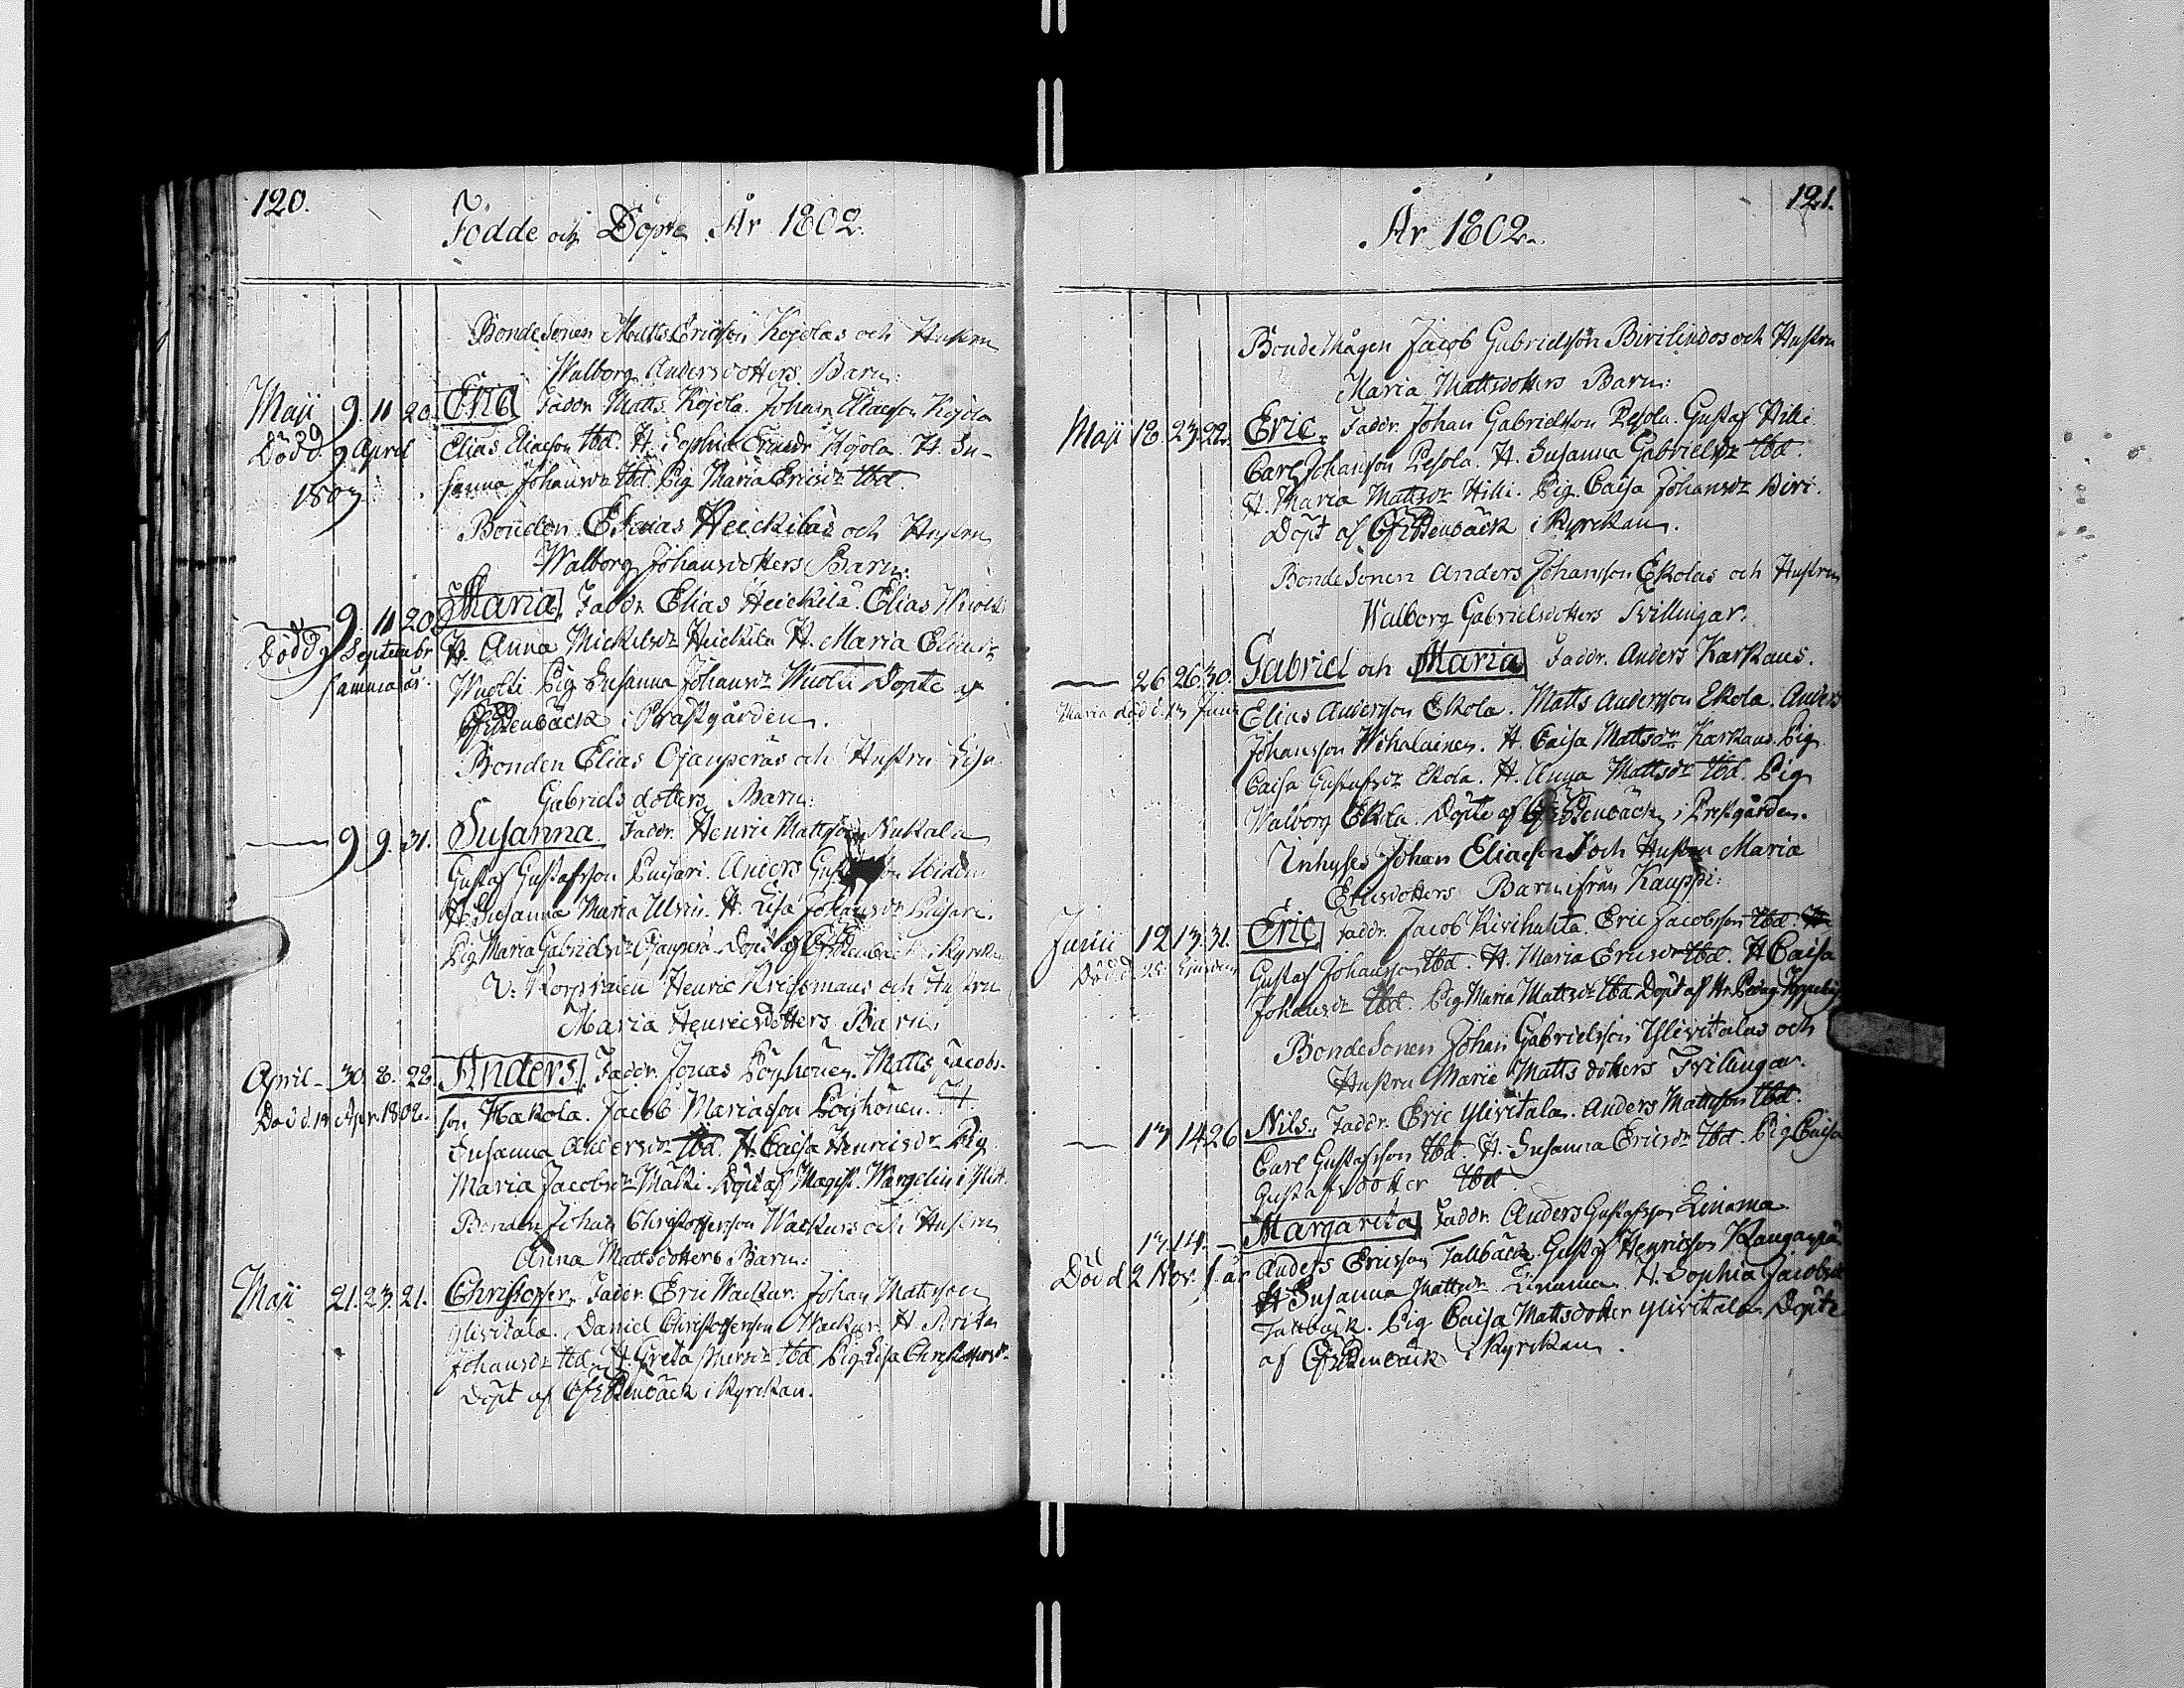 120.
Födde och Döpte År 1802.
BondeSonen Matts Ericsson Kojolas och Hustru
Walborg Andersdotters Barn:
Maji 9. 11 20. Eric, Faddr. Matts Kojola. Johan Eliaesson Kojola
Död d. 9 April Elias Eliaeson Ibd. H. Sophia Ericsdr Kojola. H. Su-
1807. sanna Johansdr Ibd. Pig. Maria Ericsdr Ibd.
Bonden Elias Heickiläs och Hustru
Walborg Johansdotters Barn:
9. 11 20. Maria, Faddr. Elias Heickilä. Elias
Död d. Septembr H. Anna Mickelsdr Heickilä H. Maria
samma år. Pig. Susanna Johansdr Döpte af
i Prästgården.
Bonden Elias Ojanperäs och Hustru Lisa
Gabrielsdotters Barn:
— 9 9. 31. Susanna. Faddr. Henric Mattsson Nukala
Gustaf Gustafsson Anders
H. Susanna Maria H. Lisa Johansdr
Pig. Maria Gabrielsdr Ojanperä. Döpt af i Kyrkan
V: Korpralen Henric Krigsmans och Hustru
Maria Henricsdotters Barn
April 30. 8. 22. Anders, Faddr. Jonas Pöyhönen. Matts Jacobs-
Död d. 18 Apr. 1802. son Hakola. Jacob Mariasson Pöyhönen. H
Susanna Andersdr Ibd. H. Caisa Henricsdr Pig
Maria Jacobsdr Mäki. Döpt af Magist. Wargelin i
Bonden Johan Christoffersson Wackurs och Hustru
Anna Mattsdotters Barn:
Maji 21. 23. 21. Christopher, Faddr. Eric Wackur. Johan Mattsson
Ylivitala. Daniel Christoffersson Wackur H. Brita
Johansdr Ibd. H. Greta Ibd. Pig. Lisa
Döpt af i Kyrckan.
121.
År 1802.
BondeMågen Jacob Gabrielsson Birilindos och Hustru
Maria Mattsdotters Barn:
Maji 18. 23. 22. Eric. Faddr. Johan Gabrielsson Pesola. Gustaf Hilli
Carl Johansson Pesola. H. Susanna Gabrielsdr Ibd.
H. Maria Mattsdr Hilli. Pig. Caisa Johansdr Biri.
Döpt af i Kyrckan.
BondeSonen Anders Johansson Ekolas och Hustru
Walborg Gabrielsdotters Tvillingar.
— 26 26 30. Gabriel och Maria, Faddr. Anders Karkaus.
Maria död d. 13 Junii Elias Andersson Ekola. Matts Andersson Ekola. Anders
Johansson Wihalainen. H. Caisa Mattsdr Karkaus. Pig
Caisa Gustafsdr Ekola. H. Anna Mattsdr Ibd. Pig
Walborg Ekola. Döpte af i Prestgården.
Inhyses Johan Eliaeson och Hustru Maria
Ericsdotters Barn ifrån Kauppi:
Junii 12 13. 31. Eric, Faddr. Jacob Kivihuhta. Eric Jacobsson Ibd.
Död d. 25. Ejusdem Gustaf Johansson Ibd. H. Maria Ericsdr Ibd. H Caisa
Johansdr Ibd. Pig Maria Mattsdr Ibd. Döpt af
BondeSonen Johan Gabrielsson Ylivitalas och
Hustru Maria Mattsdotters Tvillingar.
— 13 14 26 Nils. Faddr. Eric Ylivitala. Anders Mattsson Ibd.
Carl Gustafsson Ibd. H. Susanna Ericsdr Ibd. Pig Caisa
Gustafsdotter Ibd
13 14. — Margareta, Faddr. Anders Gustafsson Linama
Död d 2 Nov. f. år Anders Ericsson Tallbäck. Gustaf Henricsson
H Susanna Mattsdr Linama. H. Sophia Jacobsdr
Tallbäck. Pig Caisa Mattsdotter Ylivitala. Döpte
af i Kyrckan.